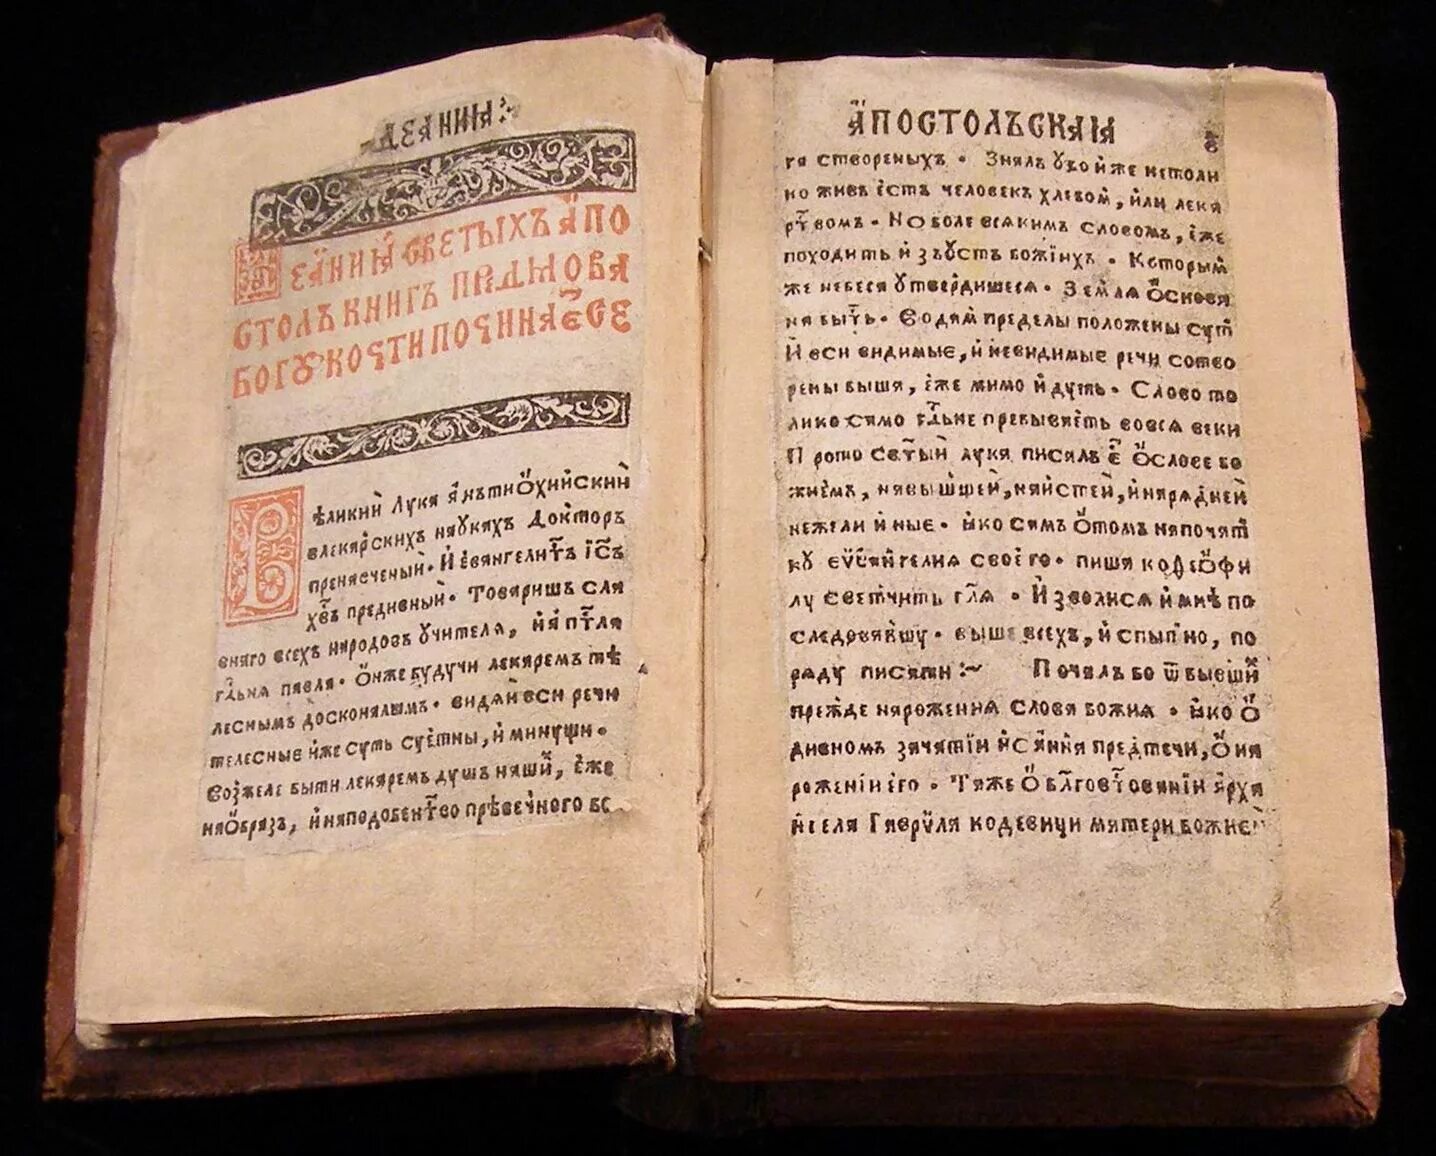 ДЕАНИꙖ:
ДЕꙖНИꙖ СВЕТЫХЪ АПО
СТОЛЪ КНИГЪ ПРꙖДМОВА
БОГУ КО ЧТИ ПОЧИНАЕТСЕ
Великий Лука анътиѡхийский
в лекарскихъ науках Доктор
пренасченый· И евангелистъ ісъ
хвъ предивный· Товаришъ сла
вняго всехъ народовъ учителя, на птла
гдьна павла· Онже будучи лекарем те
лесным досконалым· видѧ и вси речи
телесные иже суть суетны, и минущи·
возжеле быти лекарем душъ наши, еже
на образъ, и на подобенство превечного бо
АПОСТОЛЬСКАꙖ
га створеныхъ· Знал убо иже не толи
ко живъ естъ человек хлебом, или лека
рством· Но боле всяким словомъ, еже
походить и зъ устъ божіихъ· Которым
же небеса утвердишеся· Земля основа
на бытъ· Водам пределы положены сут
И вси видимые, и невидимые речи сотво
рены быша, еже мимо идуть· Слово то
лико само гдьне пребываеть во вся веки
Про то светый лука писалъ е о слове бо
жиемъ, навышшей, наистей, и нарадней
нежели иные· ꙗко сам о том на початт
ку еувангелия своего· пиша ко Ѳеофи
лу светчить гля· Изволися и мне по
следовавшу· выше всехъ, и спыпно, по
ряду писати:~ Почалъ бо ѿ бывший
прежде нарожения слова божия· ꙗко о
дивномъ зачатіи исанна предтечи, о на
роженіи его· Таже о блговствованіи арха
нгела Гаврила ко девици матери божие